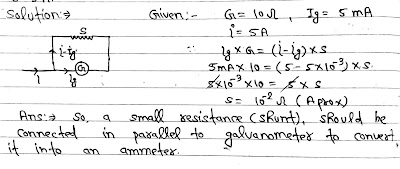 Solution:⇒ Given:- G = 10 Ω, Ig = 5 mA
S
i = 5A
i-ig
∵ Ig × G = (i-ig) × S
G
5mA × 10 = (5 - 5×10⁻³) × S
i
ig
5×10⁻³ × 10 = 5 × S
S = 10⁻² Ω (Aprox)
Ans:⇒ So, a small resistance (shunt), should be
connected in parallel to galvanometer to convert
it into an ammeter.